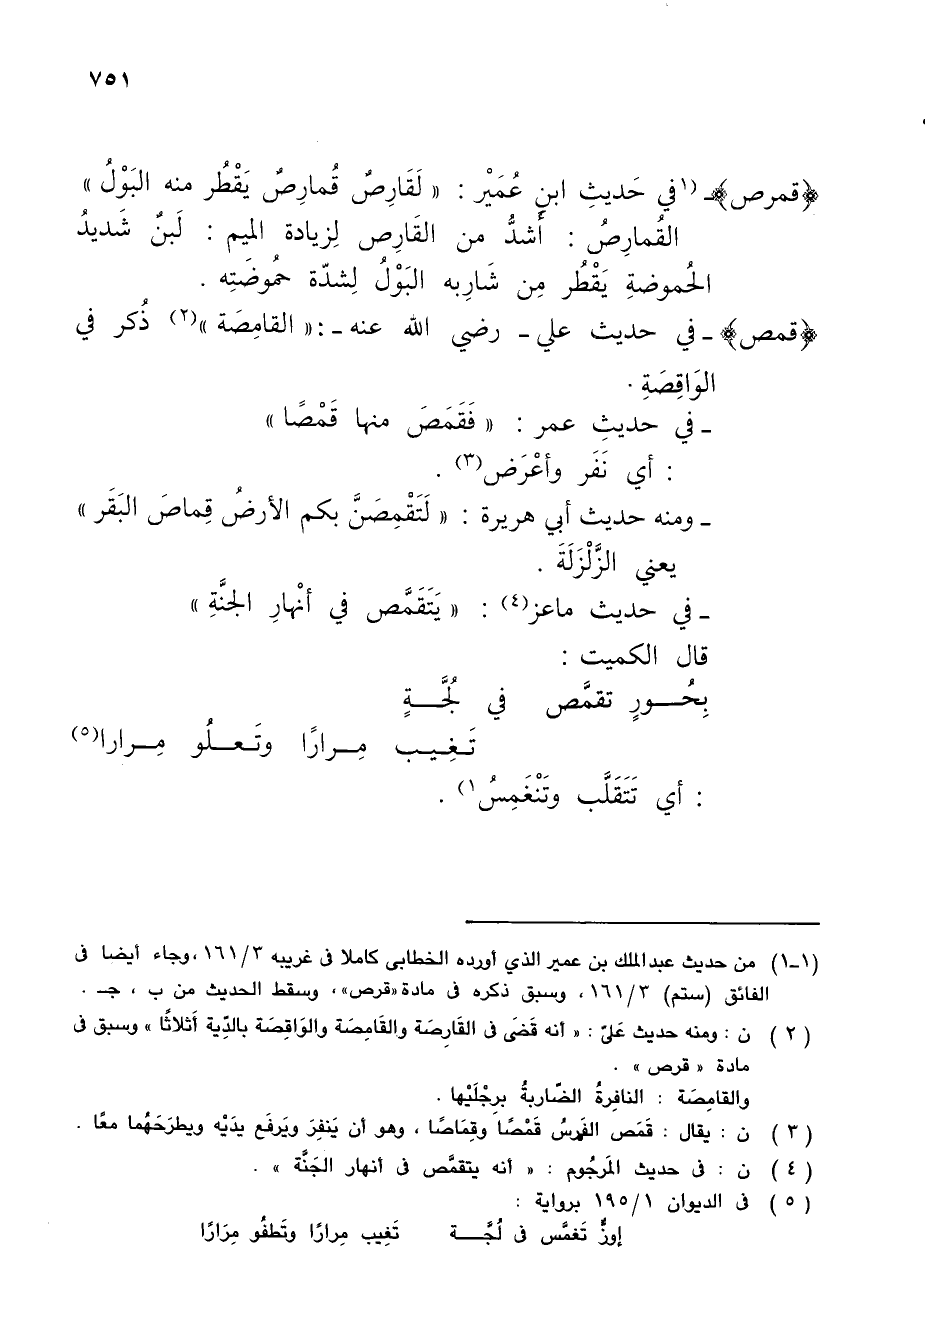 ٧٥١
﴿قمرص﴾ـ (١في حَديثِ ابنِ عُمَيْر : « لَقَارِصٌ قُمارِصٌ يَقْطُر منه البَوْلُ »
القُمارِصُ : أشدُّ من القَارِص لِزيادة الميم : لَبنٌ شَديدُ
الحُموضةِ يَقْطُر مِن شَارِبه البَوْلُ لِشدّة حُموضَتِه .
﴿قمص﴾ ـ في حديث علي ـ رضي الله عنه ـ :« القامِصَة »(٢) ذُكر في
الوَاقِصَةِ .
ـ في حديثِ عمر : « فَقَمَصَ منها قَمْصًا »
: أي نَفَر وأعْرَض(٣) .
ـ ومنه حديث أبي هريرة : « لَتَقْمِصَنَّ بكم الأرضُ قِماصَ البَقَر »
يعني الزَّلْزَلَةَ .
ـ في حديث ماعز(٤) : « يَتَقَمَّص في أنْهارِ الجنَّةِ »
قال الكميت :
بِحُـــورٍ تقمَّص في لُجَّـــةٍ
تَـغِـيـب مِـرارًا وتَـعـلُو مِـرارا(٥)
: أي تَتَقَلَّب وتَنْغَمِسُ١) .
(١ـ١) من حديث عبدالملك بن عمير الذي أورده الخطابى كاملا فى غريبه ١٦١/٣ ،وجاء أيضا فى
الفائق (ستم) ١٦١/٣ ، وسبق ذكره فى مادة «قرص»، وسقط الحديث من ب ، جـ .
( ٢ ) ن : ومنه حديث عَلىّ : « أنه قَضَى فى القَارِصَة والقَامِصَة والوَاقِصَة بالدِّية أثلاثًا » وسبق فى
مادة « قرص » .
والقامِصَة : النافرةُ الضّاربةُ برِجْلَيْها .
( ٣ ) ن : يقال : قَمَص الفَرسُ قَمْصًا وقِمَاصًا ، وهو أن يَنفِرَ ويَرفَع يدَيْه ويطرَحَهُما معًا .
( ٤ ) ن : فى حديث المَرجُوم : « أنه يتقمَّص فى أنهار الجَنَّة » .
( ٥ ) فى الديوان ١٩٥/١ برواية :
إوزٌّ تَغمَّس فى لُجَّـــة تَغِيب مِرارًا وتَطفُو مِرَارًا